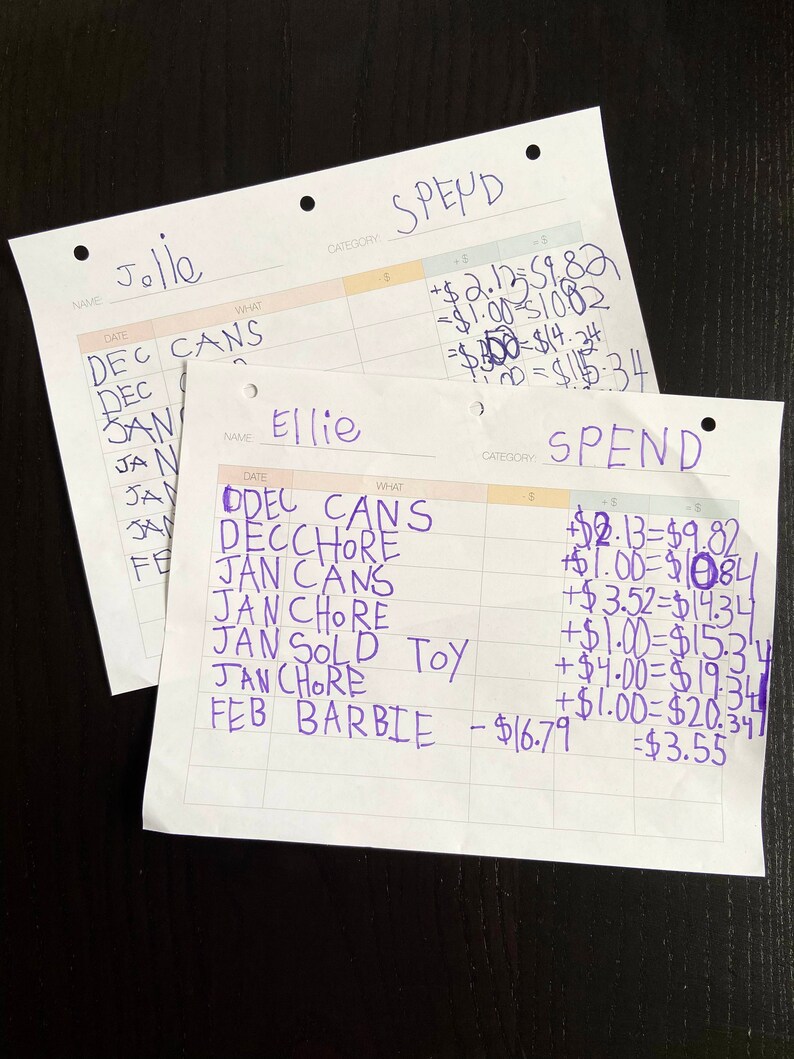 Jolie
SPEND
NAME:
CATEGORY:
DATE WHAT - $ + $ = $
DEC CANS +$2.13=$9.82
DEC =$1.00=$10.82
JAN =$14.34
JAN =$15.34
JAN
JAN
FE
NAME: Ellie CATEGORY: SPEND
DATE WHAT - $ + $ = $
DEC CANS +$2.13=$9.82
DEC CHORE +$1.00=$10.84
JAN CANS +$3.52=$14.34
JAN CHORE +$1.00=$15.34
JAN SOLD TOY +$4.00=$19.34
JAN CHORE +$1.00=$20.34
FEB BARBIE -$16.79 =$3.55